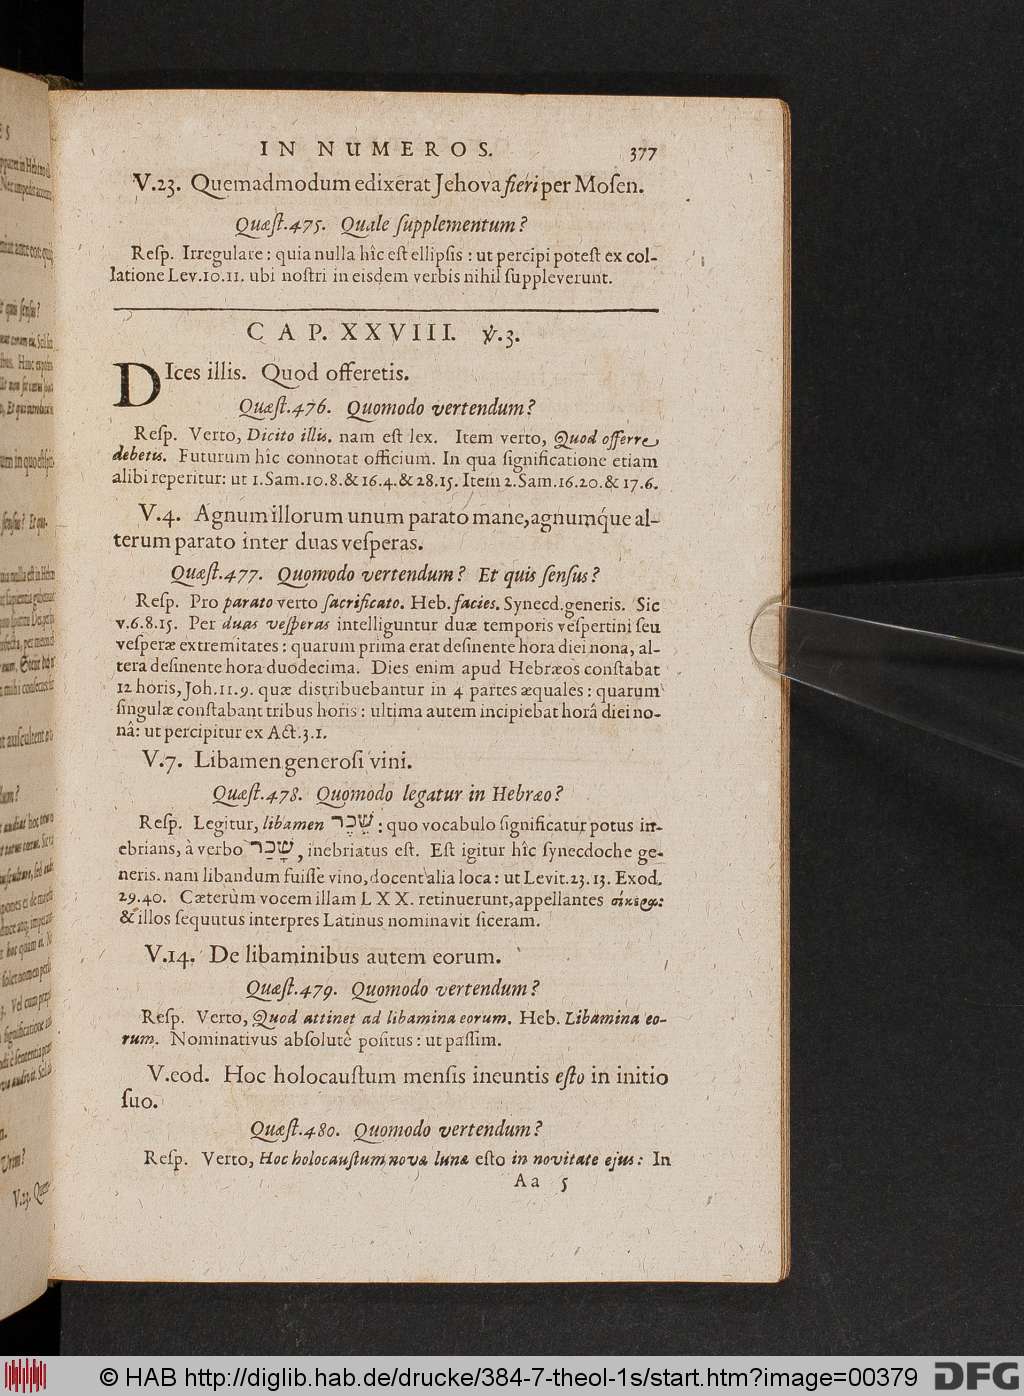 IN NUMEROS. 377
V.23. Quemadmodum edixerat Jehova fieri per Mosen.
Quæst.475. Quale supplementum?
Resp. Irregulare: quia nulla hîc est ellipsis: ut percipi potest ex col-
latione Lev.10.11. ubi nostri in eisdem verbis nihil suppleverunt.
CAP. XXVIII. ℣.3.
DIces illis. Quod offeretis.
Quæst.476. Quomodo vertendum?
Resp. Verto, Dicito illis. nam est lex. Item verto, Quod offerre
debetis. Futurum hîc connotat officium. In qua significatione etiam
alibi reperitur: ut 1.Sam.10.8.& 16.4.& 28.15. Item 2.Sam.16.20.& 17.6.
V.4. Agnum illorum unum parato mane, agnumq́ue al-
terum parato inter duas vesperas.
Quæst.477. Quomodo vertendum? Et quis sensus?
Resp. Pro parato verto sacrificato. Heb. facies. Synecd. generis. Sic
v.6.8.15. Per duas vesperas intelliguntur duæ temporis vespertini seu
vesperæ extremitates: quarum prima erat desinente hora diei nona, al-
tera desinente hora duodecima. Dies enim apud Hebræos constabat
12 horis, Joh.11.9. quæ distribuebantur in 4 partes æquales: quarum
singulæ constabant tribus horis: ultima autem incipiebat horâ diei no-
nâ: ut percipitur ex Act.3.1.
V.7. Libamen generosi vini.
Quæst.478. Quomodo legatur in Hebræo?
Resp. Legitur, libamen שֵׁכָר: quo vocabulo significatur potus in-
ebrians, à verbo שָׁכַר, inebriatus est. Est igitur hîc synecdoche ge-
neris. nam libandum fuisse vino, docent alia loca: ut Levit.23.13. Exod.
29.40. Cæterùm vocem illam LXX. retinuerunt, appellantes σίκερα:
& illos sequutus interpres Latinus nominavit siceram.
V.14. De libaminibus autem eorum.
Quæst.479. Quomodo vertendum?
Resp. Verto, Quod attinet ad libamina eorum. Heb. Libamina eo-
rum. Nominativus absolutè positus: ut passim.
V.eod. Hoc holocaustum mensis ineuntis esto in initio
suo.
Quæst.480. Quomodo vertendum?
Resp. Verto, Hoc holocaustum novæ lunæ esto in novitate ejus: In
Aa 5
© HAB http://diglib.hab.de/drucke/384-7-theol-1s/start.htm?image=00379
DFG